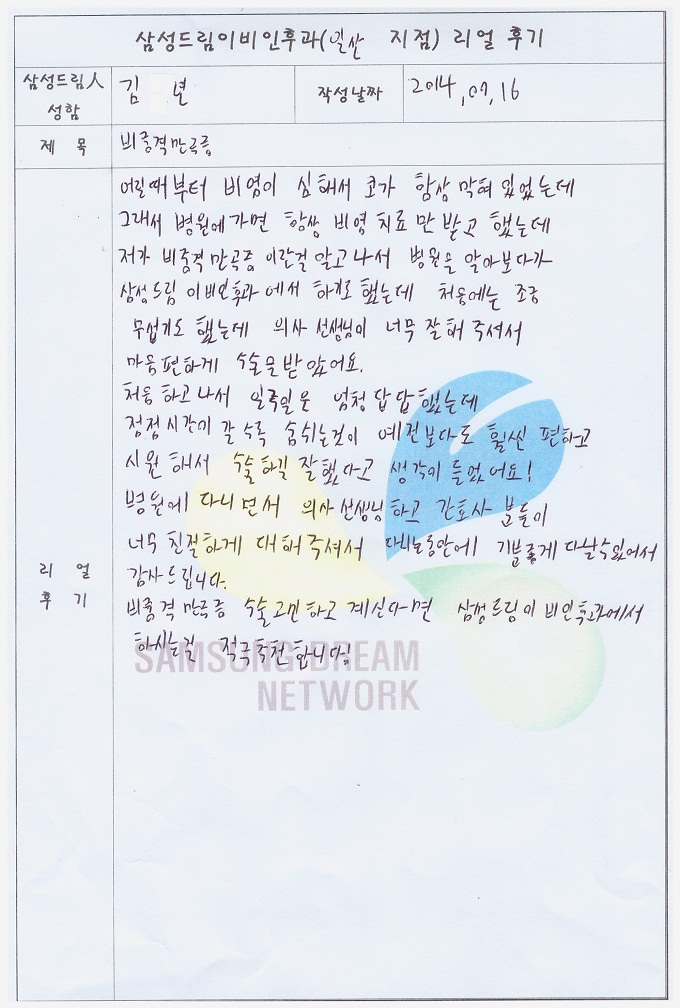 삼성드림이비인후과(일산 지점) 리얼 후기
삼성드림人 성함
김 년
작성날짜
2014, 07, 16
제 목
비중격만곡증
리 얼 후 기
어릴때부터 비염이 심해서 코가 항상 막혀 있었는데
그래서 병원에 가면 항상 비염 치료만 받고 했는데
저가 비중격만곡증 이란걸 알고나서 병원을 알아보다가
삼성드림 이비인후과에서 하기로 했는데 처음에는 조금
무섭기도 했는데 의사 선생님이 너무 잘해 주셔서
마음편하게 수술을 받았어요.
처음 하고나서 일주일은 엄청 답답했는데
점점 시간이 갈 수록 숨쉬는것이 예전보다도 훨씬 편하고
시원해서 수술하길 잘했다고 생각이 들었어요!
병원에 다니면서 의사선생님하고 간호사 분들이
너무 친절하게 대해주셔서 다니는동안에 기분좋게 다닐수있어서
감사드립니다.
비중격만곡증 수술고민하고 계신다면 삼성드림이비인후과에서
하시는걸 적극추천합니다!
SAMSUNG DREAM
NETWORK